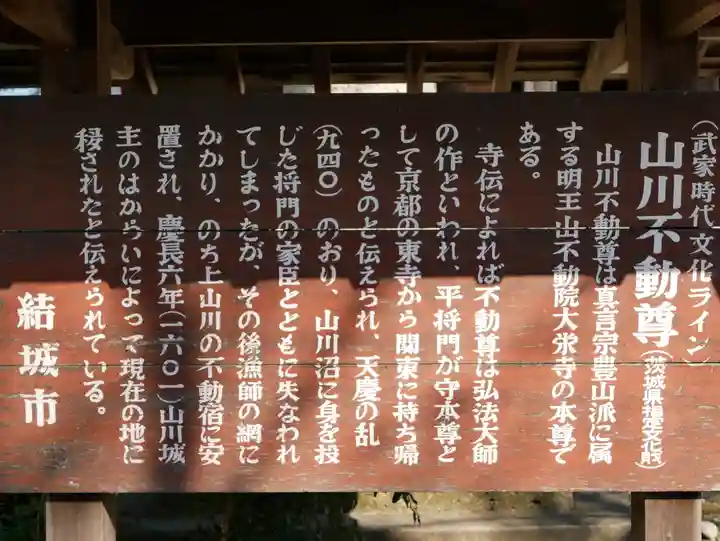 （武家時代文化ライン）
山川不動尊（茨城県指定文化財）
山川不動尊は真言宗豊山派に属
する明王山不動院大栄寺の本尊で
ある。
寺伝によれば不動尊は弘法大師
の作といわれ、平将門が守本尊と
して京都の東寺から関東に持ち帰
ったものと伝えられ、天慶の乱
（九四〇）のおり、山川沼に身を投
じた将門の家臣とともに失なわれ
てしまったが、その後漁師の網に
かかり、のち上山川の不動宿に安
置され、慶長六年（一六〇一）山川城
主のはからいによって現在の地に
移されたと伝えられている。
結城市